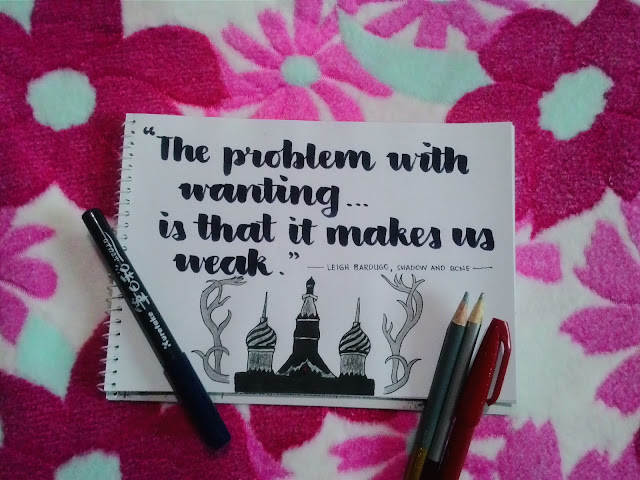 “The problem with
wanting...
is that it makes us
weak.”
— LEIGH BARDUGO, SHADOW AND BONE —
Kuretake